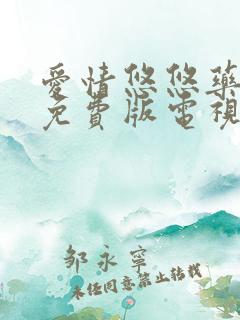 愛情悠悠藥
免費版電視
邹永寧
未经同意禁止转载